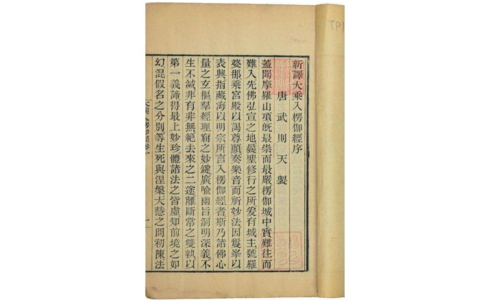 新譯大乘入楞伽經序
唐武則天製
蓋聞摩羅山頂既最崇而最嚴楞伽城中實難往而
難入先佛弘宣之地曩聖修行之所爰有城主號羅
婆那乘宮殿以謁尊顏奏樂音而祈妙法因鬘峯以
表興指藏海以明宗所言入楞伽經者斯乃諸佛心
量之玄樞羣經理窟之妙鍵廣喻幽旨洞明深義不
生不滅非有非無絕去來之二途離斷常之雙執以
第一義諦得最上妙珍體諸法之皆虛知前境之如
幻混假名之分別等生死與涅槃大慧之問初陳法